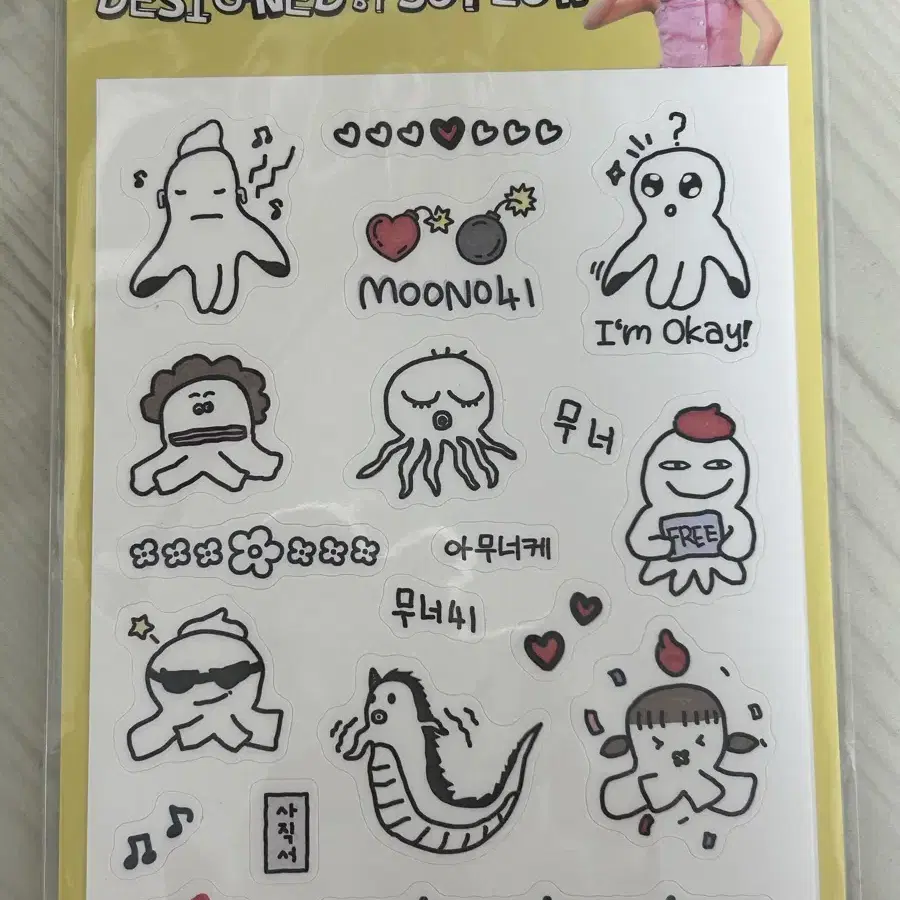 DESIGNED BY
?
MOONO41
I'm Okay!
무너
FREE
아무너케
무너41
사직서